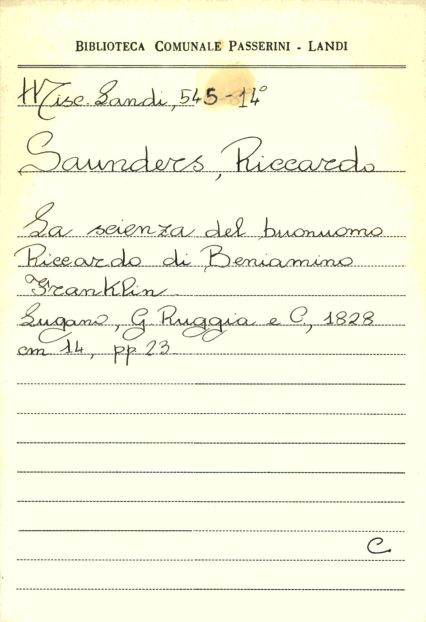 BIBLIOTECA COMUNALE PASSERINI - LANDI
Misc. Landi, 545-14°
Saunders, Riccardo
La scienza del buonuomo
Riccardo di Beniamino
Franklin
Lugano, G. Ruggia e C., 1828
cm 14, pp 23
C